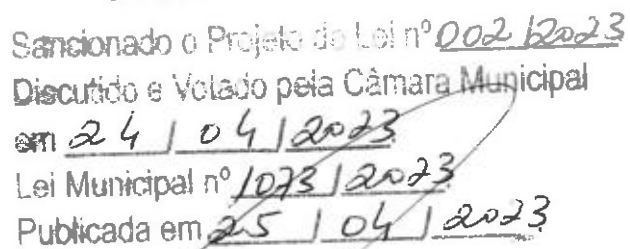 Sancionado o Projeto de Lei nº 002/2023
Discutido e Votado pela Câmara Municipal
em 24 / 04 / 2023
Lei Municipal nº 1073 / 2023
Publicada em 25 / 04 / 2023